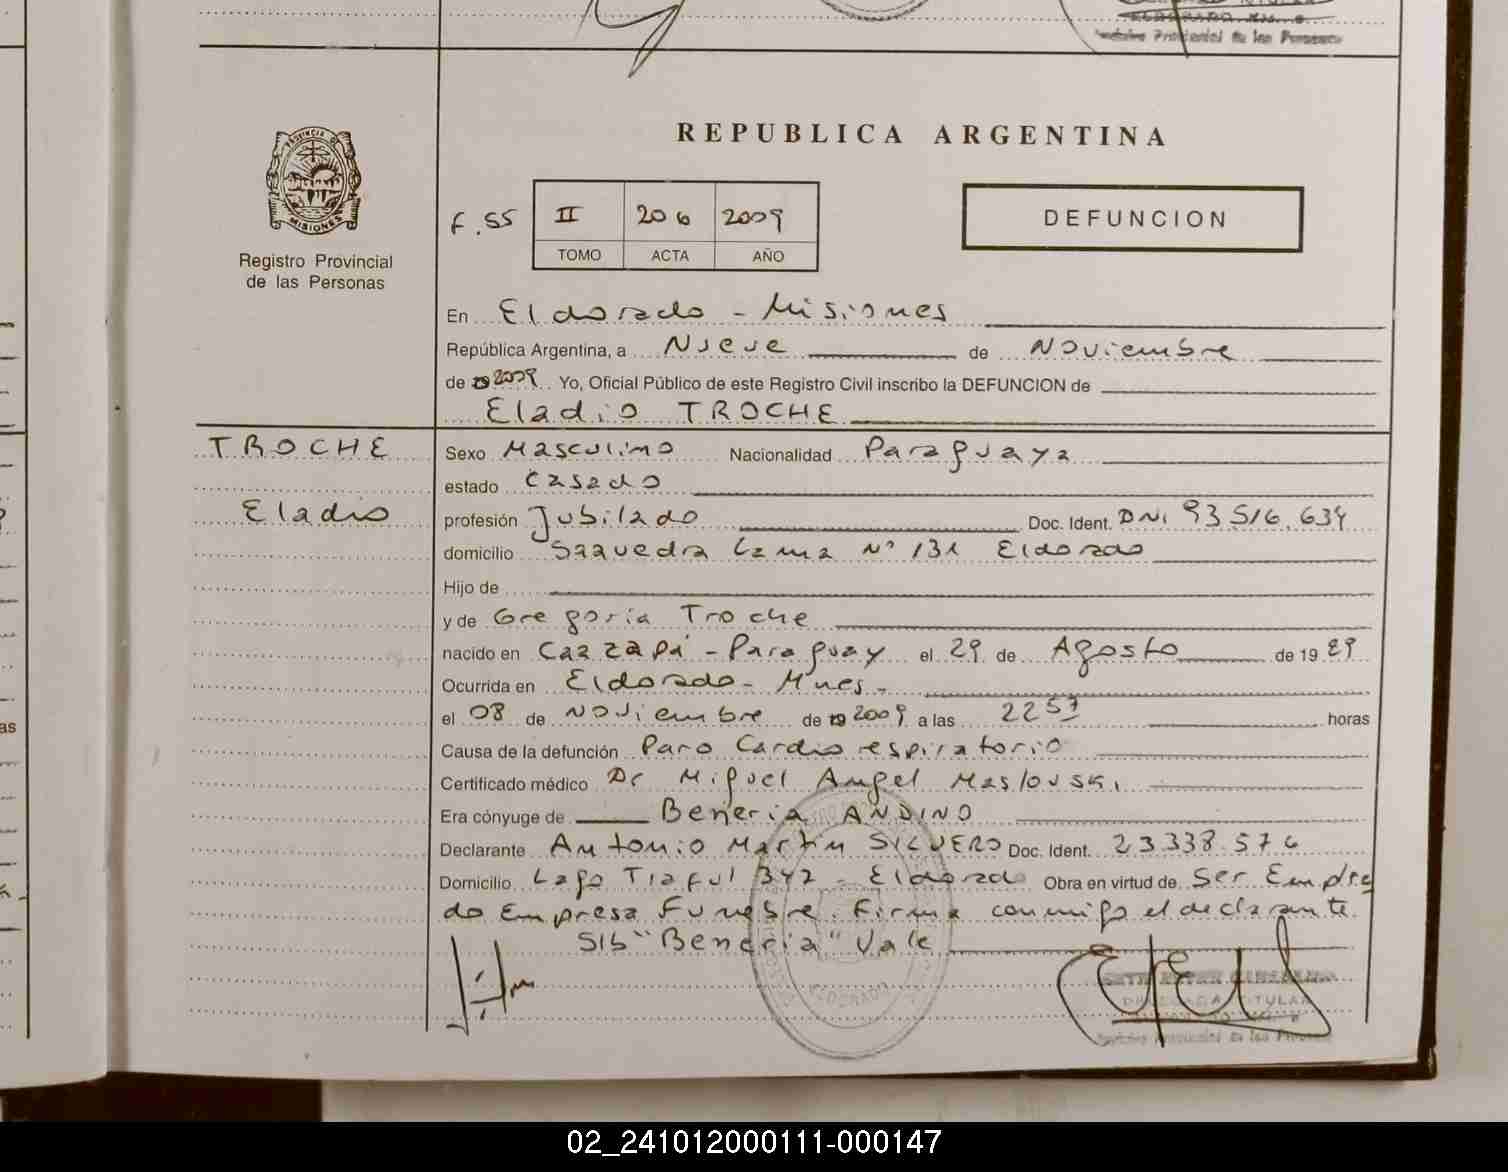 REPUBLICA ARGENTINA
PROVINCIA D
MISIONES
Registro Provincial
de las Personas
F. 55
II 206 2009
TOMO ACTA AÑO
DEFUNCION
En Eldorado - Misiones
República Argentina, a Nueve de Noviembre
de 2009 Yo, Oficial Público de este Registro Civil inscribo la DEFUNCION de
Eladio TROCHE
TROCHE
Eladio
Sexo Masculino Nacionalidad Paraguaya
estado Casado
profesión Jubilado Doc. Ident. DNI 93516.634
domicilio Saavedra Lama Nº 131 Eldorado
Hijo de
y de Gregoria Troche
nacido en Caazapá - Paraguay el 29 de Agosto de 19 29
Ocurrida en Eldorado - Mnes -
el 08 de Noviembre de 2009 a las 2257 horas
Causa de la defunción Paro Cardio respiratorio
Certificado médico Dr Miguel Angel Maslowski
Era cónyuge de Beneria ANDINO
Declarante Antonio Martin SILVERO Doc. Ident. 23338.576
Domicilio Lago Traful 342 - Eldorado Obra en virtud de Ser Emplea
do Empresa Funebre. Firma conmigo el declarante.
S/b "Beneria" Vale
ELDORADO
TITULAR
Provincial de las Personas
02_241012000111-000147